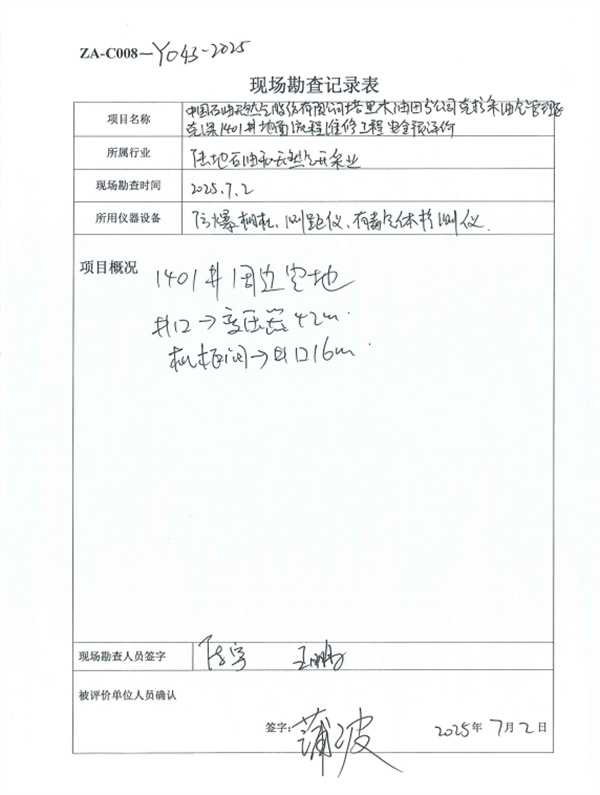 ZA-C008-Y043-2025
现场勘查记录表
项目名称
中国石油天然气股份有限公司塔里木油田分公司克拉采油气管理区
克深1401井地面流程维修工程安全预评价
所属行业
陆地石油和天然气开采业
现场勘查时间
2025.7.2
所用仪器设备
防爆相机、测距仪、有毒气体检测仪.
项目概况
1401井周边空地
井口→变压器 42m.
机柜间→井口 16m.
现场勘查人员签字
被评价单位人员确认
签字:蒲波
2025年7月2日